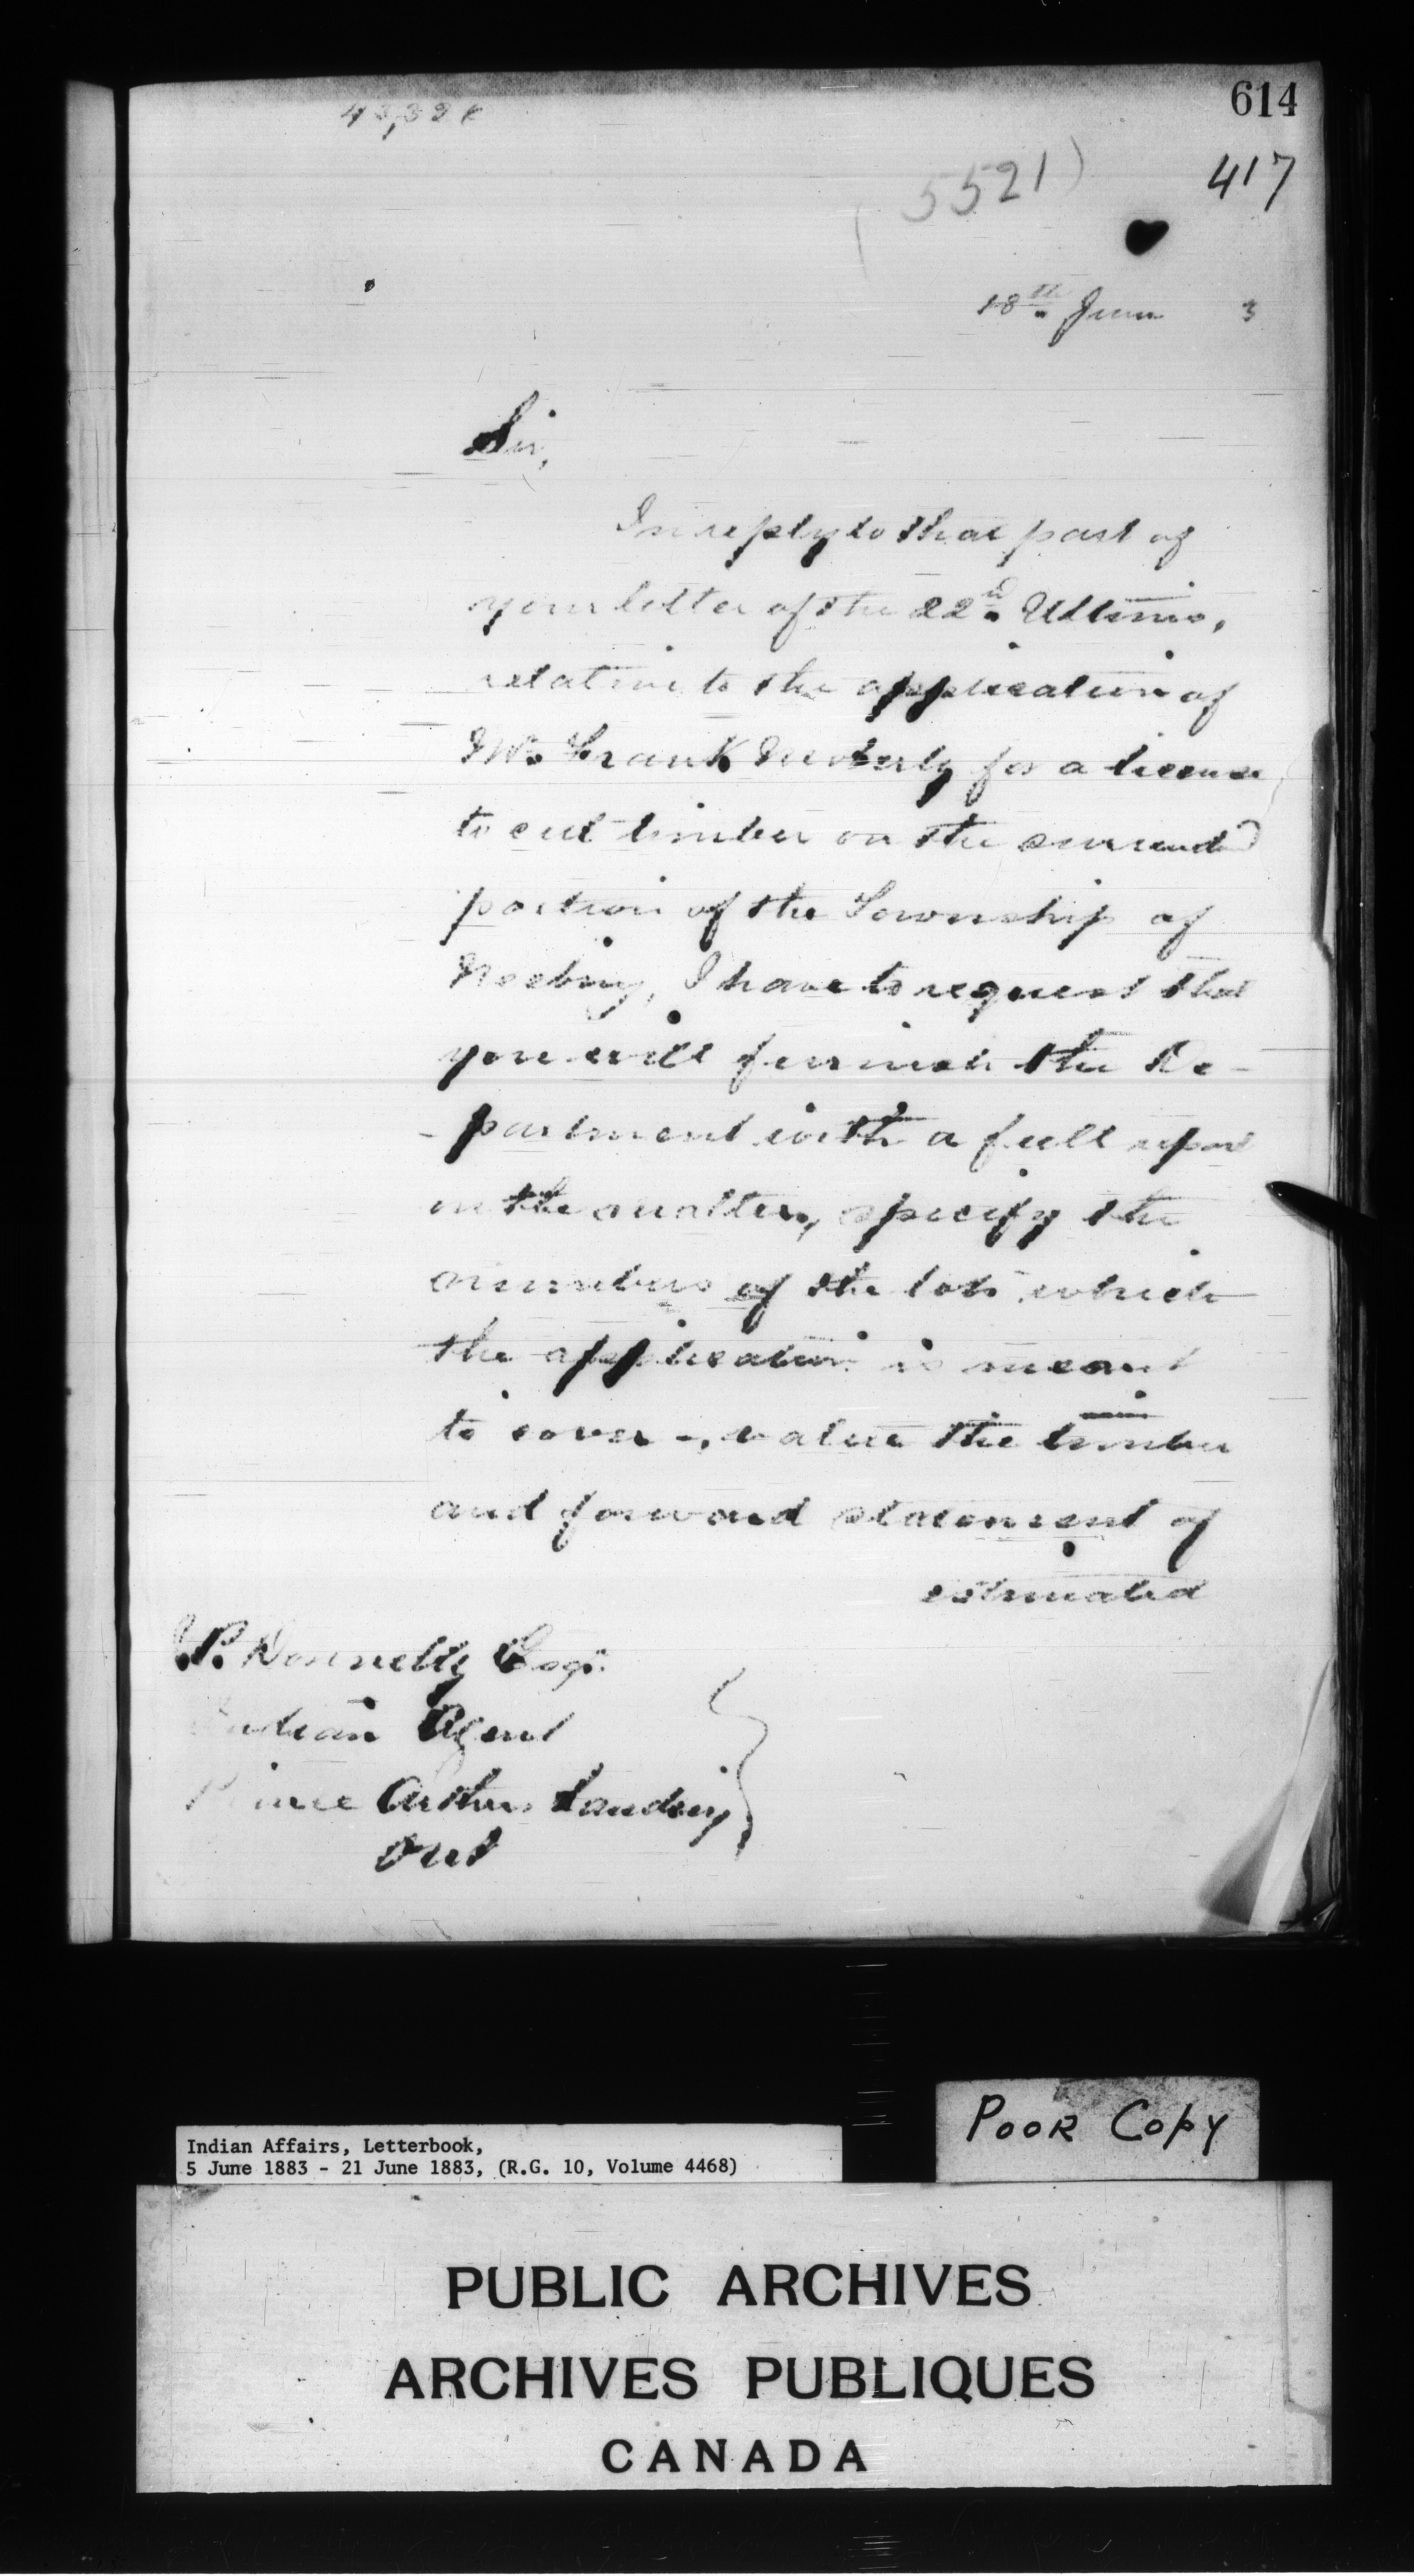 614
417
(5521)
18th June 3
Sir,
In reply to that part of
your letter of the 22nd Ultimo,
relative to the application of
Mr. Frank for a license
to cut timber on the surrend
portion of the Township of
Neebing, I have to request that
you will furnish the De-
-partment with a full report
in the matter, specify the
numbers of the lots which
the application is meant
to cover -, value the timber
and forward statement of
estimated
P. Donnelly Esqr.
Indian Agent
Prince Arthurs Landing
Ont
Indian Affairs, Letterbook,
5 June 1883 - 21 June 1883, (R.G. 10, Volume 4468)
POOR COPY
PUBLIC ARCHIVES
ARCHIVES PUBLIQUES
CANADA